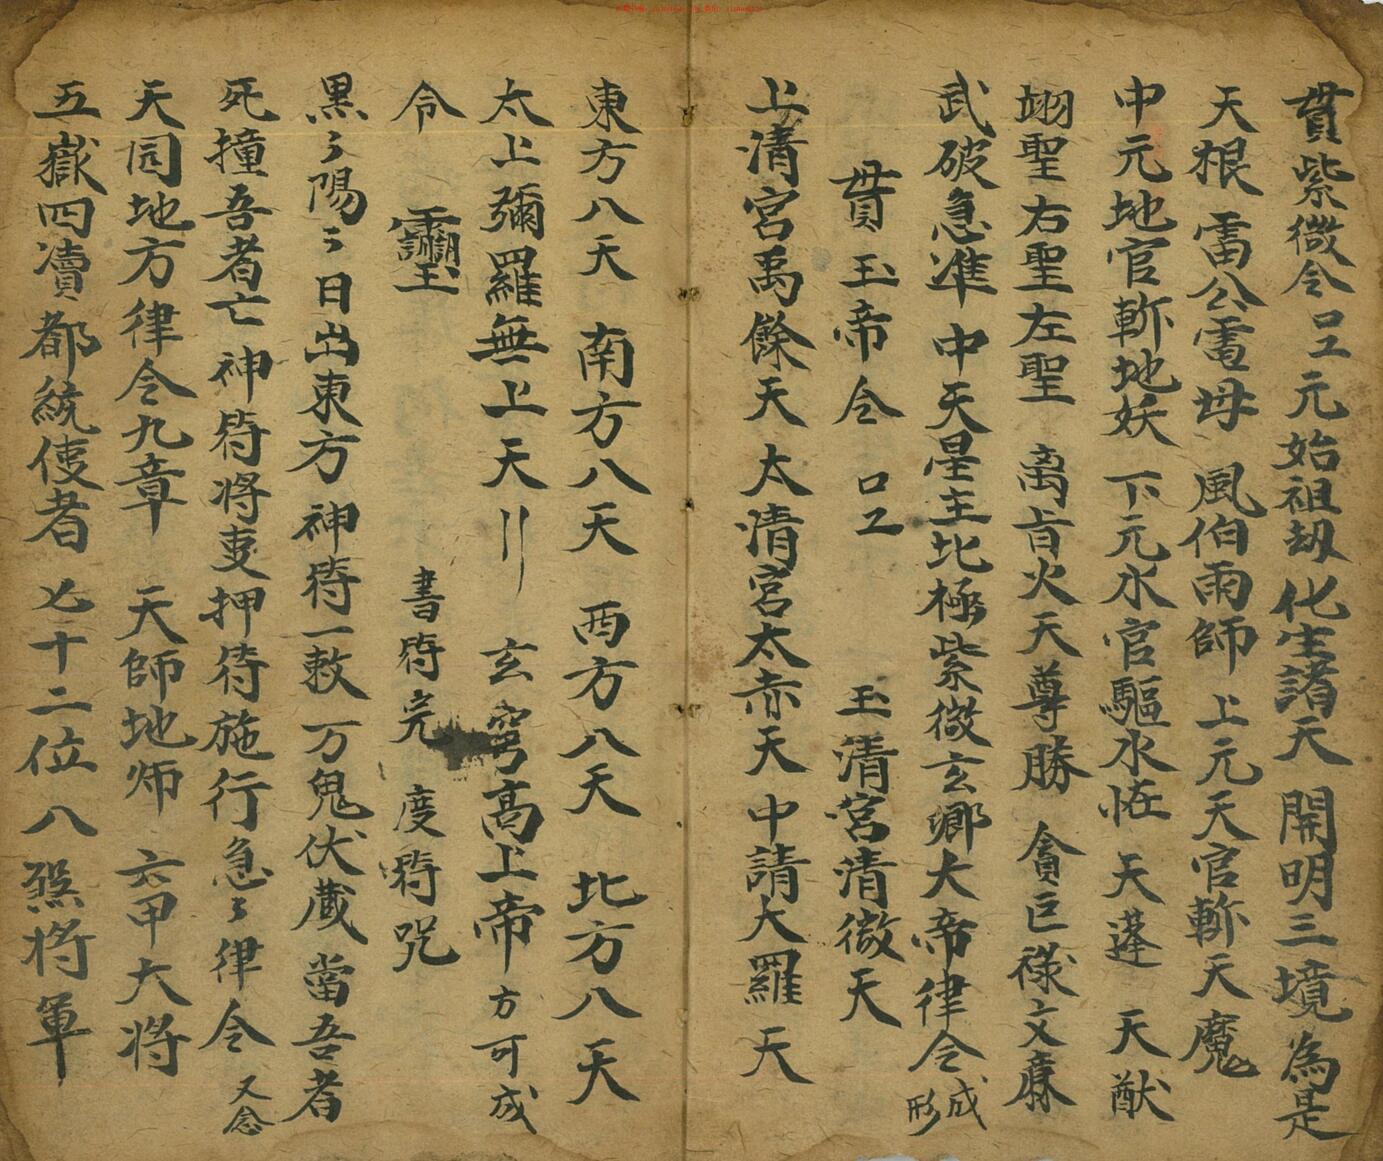 貫紫微令口工元始祖劫化生諸天 開明三境為是
天根 雷公電母 風伯雨師 上元天官斬天魔
中元地官斬地妖 下元水官驅水怪 天蓬 天猷
翊聖右聖左聖 离肓火天尊勝 貪巨禄文廉
武破急准 中天星主北極紫微玄卿大帝律令成形
貫玉帝令 口工 玉清宮清微天
上清宮禹餘天 太清宮太赤天 中請大羅天
東方八天 南方八天 西方八天 北方八天
太上彌羅無上天〢 玄穹高上帝 方可成
令 書符完 度符咒
黒〻陽〻日出東方 神符一敕 万鬼伏藏 當吾者
死撞吾者亡 神符將吏押符施行急〻律令 又念
天园地方律令九章 天師地师 六甲大将
五嶽四瀆都統使者 七十二位 八煞将軍